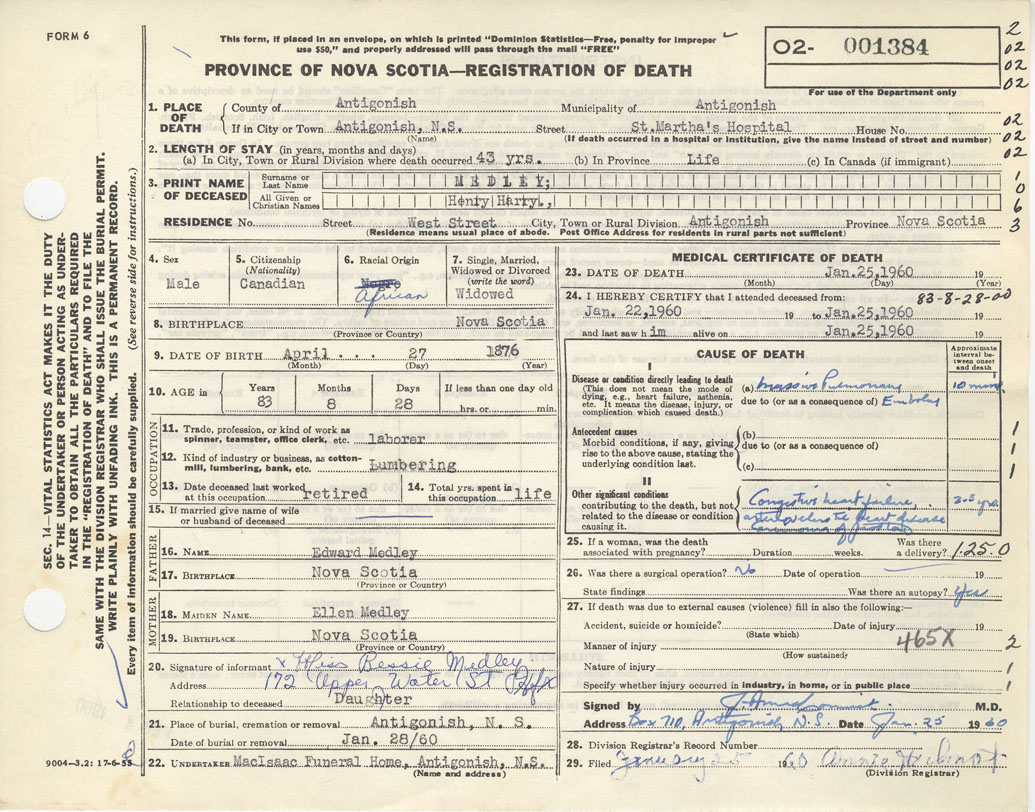 FORM 6
This form, if placed in an envelope, on which is printed "Dominion Statistics—Free, penalty for improper
use $50," and properly addressed will pass through the mail "FREE"
PROVINCE OF NOVA SCOTIA—REGISTRATION OF DEATH
02- 001384
For use of the Department only
2
02
02
02
SEC. 14—VITAL STATISTICS ACT MAKES IT THE DUTY
OF THE UNDERTAKER OR PERSON ACTING AS UNDER-
TAKER TO OBTAIN ALL THE PARTICULARS REQUIRED
IN THE "REGISTRATION OF DEATH" AND TO FILE THE
SAME WITH THE DIVISION REGISTRAR WHO SHALL ISSUE THE BURIAL PERMIT.
WRITE PLAINLY WITH UNFADING INK. THIS IS A PERMANENT RECORD.
Every item of Information should be carefully supplied. (See reverse side for instructions.)
1. PLACE OF DEATH
County of Antigonish Municipality of Antigonish
If in City or Town Antigonish, N.S. Street St.Martha's Hospital House No.
(Name) (If death occurred in a hospital or institution, give the name instead of street and number)
02
02
02
2. LENGTH OF STAY (in years, months and days)
(a) In City, Town or Rural Division where death occurred 43 yrs. (b) In Province Life (c) In Canada (if immigrant)
3. PRINT NAME OF DECEASED
Surname or Last Name MEDLEY;
All Given or Christian Names Henry Harry.,
1
0
6
3
RESIDENCE No. Street West Street City, Town or Rural Division Antigonish Province Nova Scotia
(Residence means usual place of abode. Post Office Address for residents in rural parts not sufficient)
4. Sex
Male
5. Citizenship
(Nationality)
Canadian
6. Racial Origin
Negro
African
7. Single, Married,
Widowed or Divorced
(write the word)
Widowed
8. BIRTHPLACE Nova Scotia
(Province or Country)
9. DATE OF BIRTH April . . . 27 1876
(Month) (Day) (Year)
10. AGE in
Years Months Days If less than one day old
83 8 28 hrs. or min.
OCCUPATION
11. Trade, profession, or kind of work as
spinner, teamster, office clerk, etc. laborer
12. Kind of industry or business, as cotton-
mill, lumbering, bank, etc. Lumbering
13. Date deceased last worked
at this occupation retired
14. Total yrs. spent in
this occupation life
15. If married give name of wife
or husband of deceased
FATHER
16. NAME Edward Medley
17. BIRTHPLACE Nova Scotia
(Province or Country)
MOTHER
18. MAIDEN NAME Ellen Medley
19. BIRTHPLACE Nova Scotia
(Province or Country)
20. Signature of informant x Miss Bessie Medley
Address 172 Upper Water St Hfx
Relationship to deceased Daughter
21. Place of burial, cremation or removal Antigonish, N. S.
Date of burial or removal Jan. 28/60
22. UNDERTAKER MacIsaac Funeral Home, Antigonish, N.S.
(Name and address)
9004—3.2: 17-6-55
MEDICAL CERTIFICATE OF DEATH
23. DATE OF DEATH Jan.25,1960 19
(Month) (Day) (Year)
24. I HEREBY CERTIFY that I attended deceased from: 83-8-28-00
Jan. 22,1960 19 to Jan.25,1960 19
and last saw h im alive on Jan.25,1960 19
CAUSE OF DEATH
Approximate
interval be-
tween onset
and death
I
Disease or condition directly leading to death
(This does not mean the mode of
dying, e.g., heart failure, asthenia,
etc. It means the disease, injury, or
complication which caused death.)
(a) Massive Pulmonary
due to (or as a consequence of) Embolus
10
Antecedent causes
Morbid conditions, if any, giving
rise to the above cause, stating the
underlying condition last.
(b)
due to (or as a consequence of)
(c)
1
1
1
II
Other significant conditions
contributing to the death, but not
related to the disease or condition
causing it.
Congestive heart failure,
heart disease
carcinoma of
25. If a woman, was the death
associated with pregnancy? Duration weeks. Was there
a delivery? 1.25.0
26. Was there a surgical operation? No Date of operation 19
State findings Was there an autopsy? Yes
27. If death was due to external causes (violence) fill in also the following:—
Accident, suicide or homicide? Date of injury 19
(State which)
465X
Manner of injury 2
(How sustained)
Nature of injury 1
Specify whether injury occurred in industry, in home, or in public place 1
Signed by M.D.
Address Box 710, Antigonish, N.S. Date Jan. 25 1960
28. Division Registrar's Record Number
29. Filed January 25 1960 Annie
(Division Registrar)